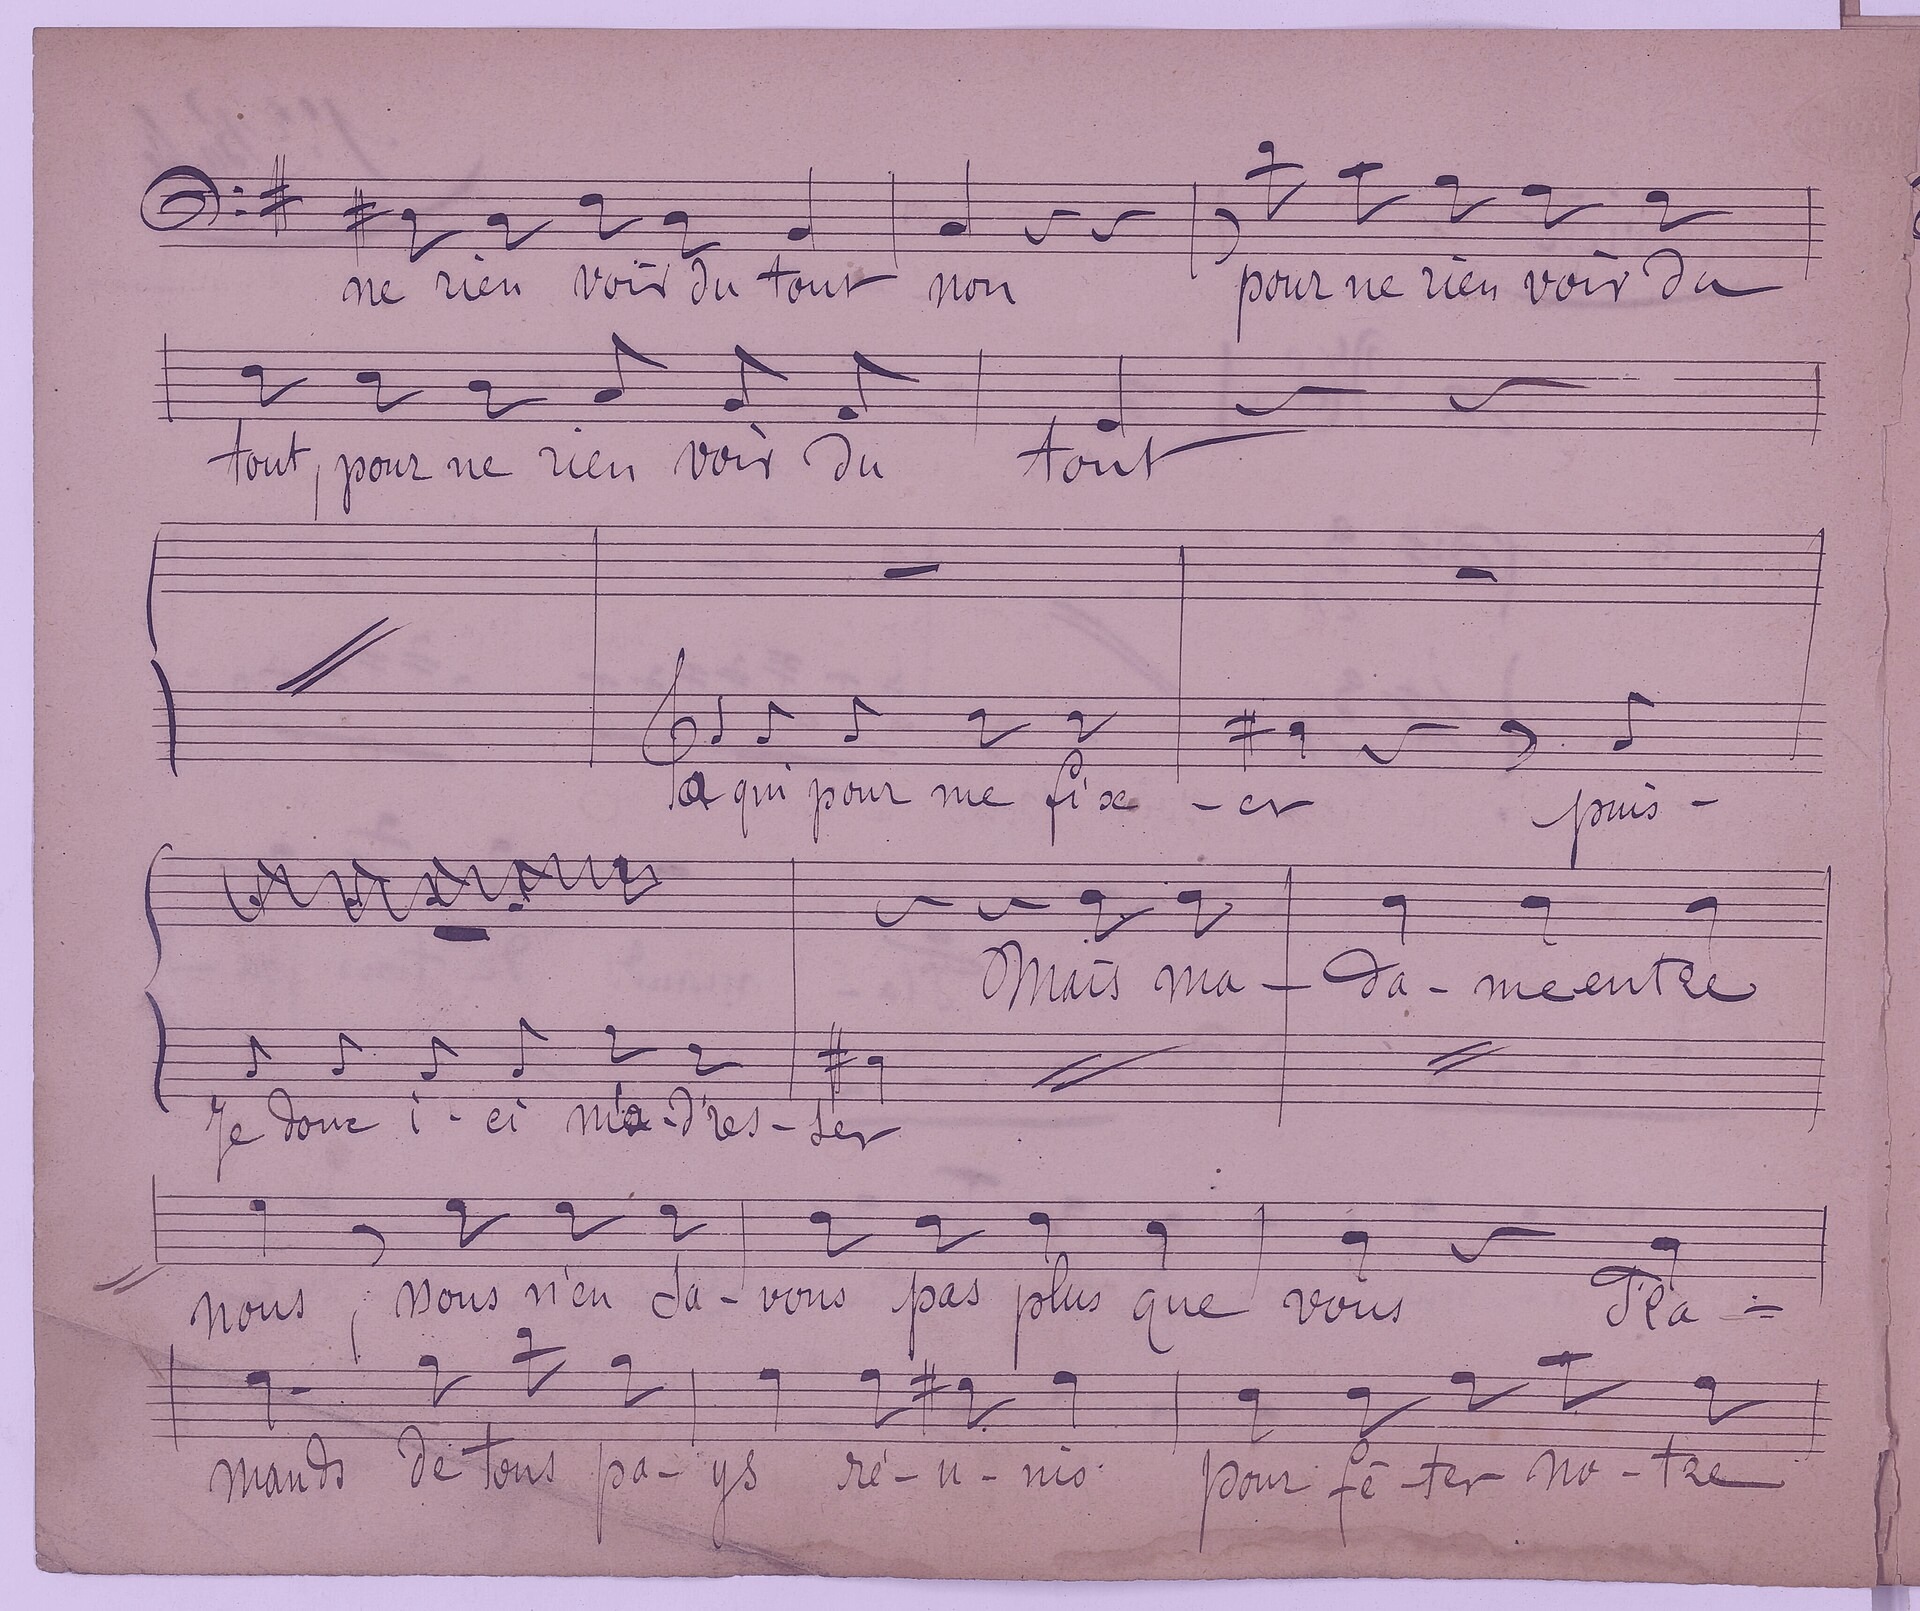 ne rien voir du tout non pour ne rien voir du
tout, pour ne rien voir du tout
a qui pour me fixe - er puis -
Mais ma - da - me entre
je donc i - ci m'a - d'res - ser
nous, nous n'en sa - vons pas plus que vous
mands de tous pa - ys ré - u - nis pour fê - ter no - tre